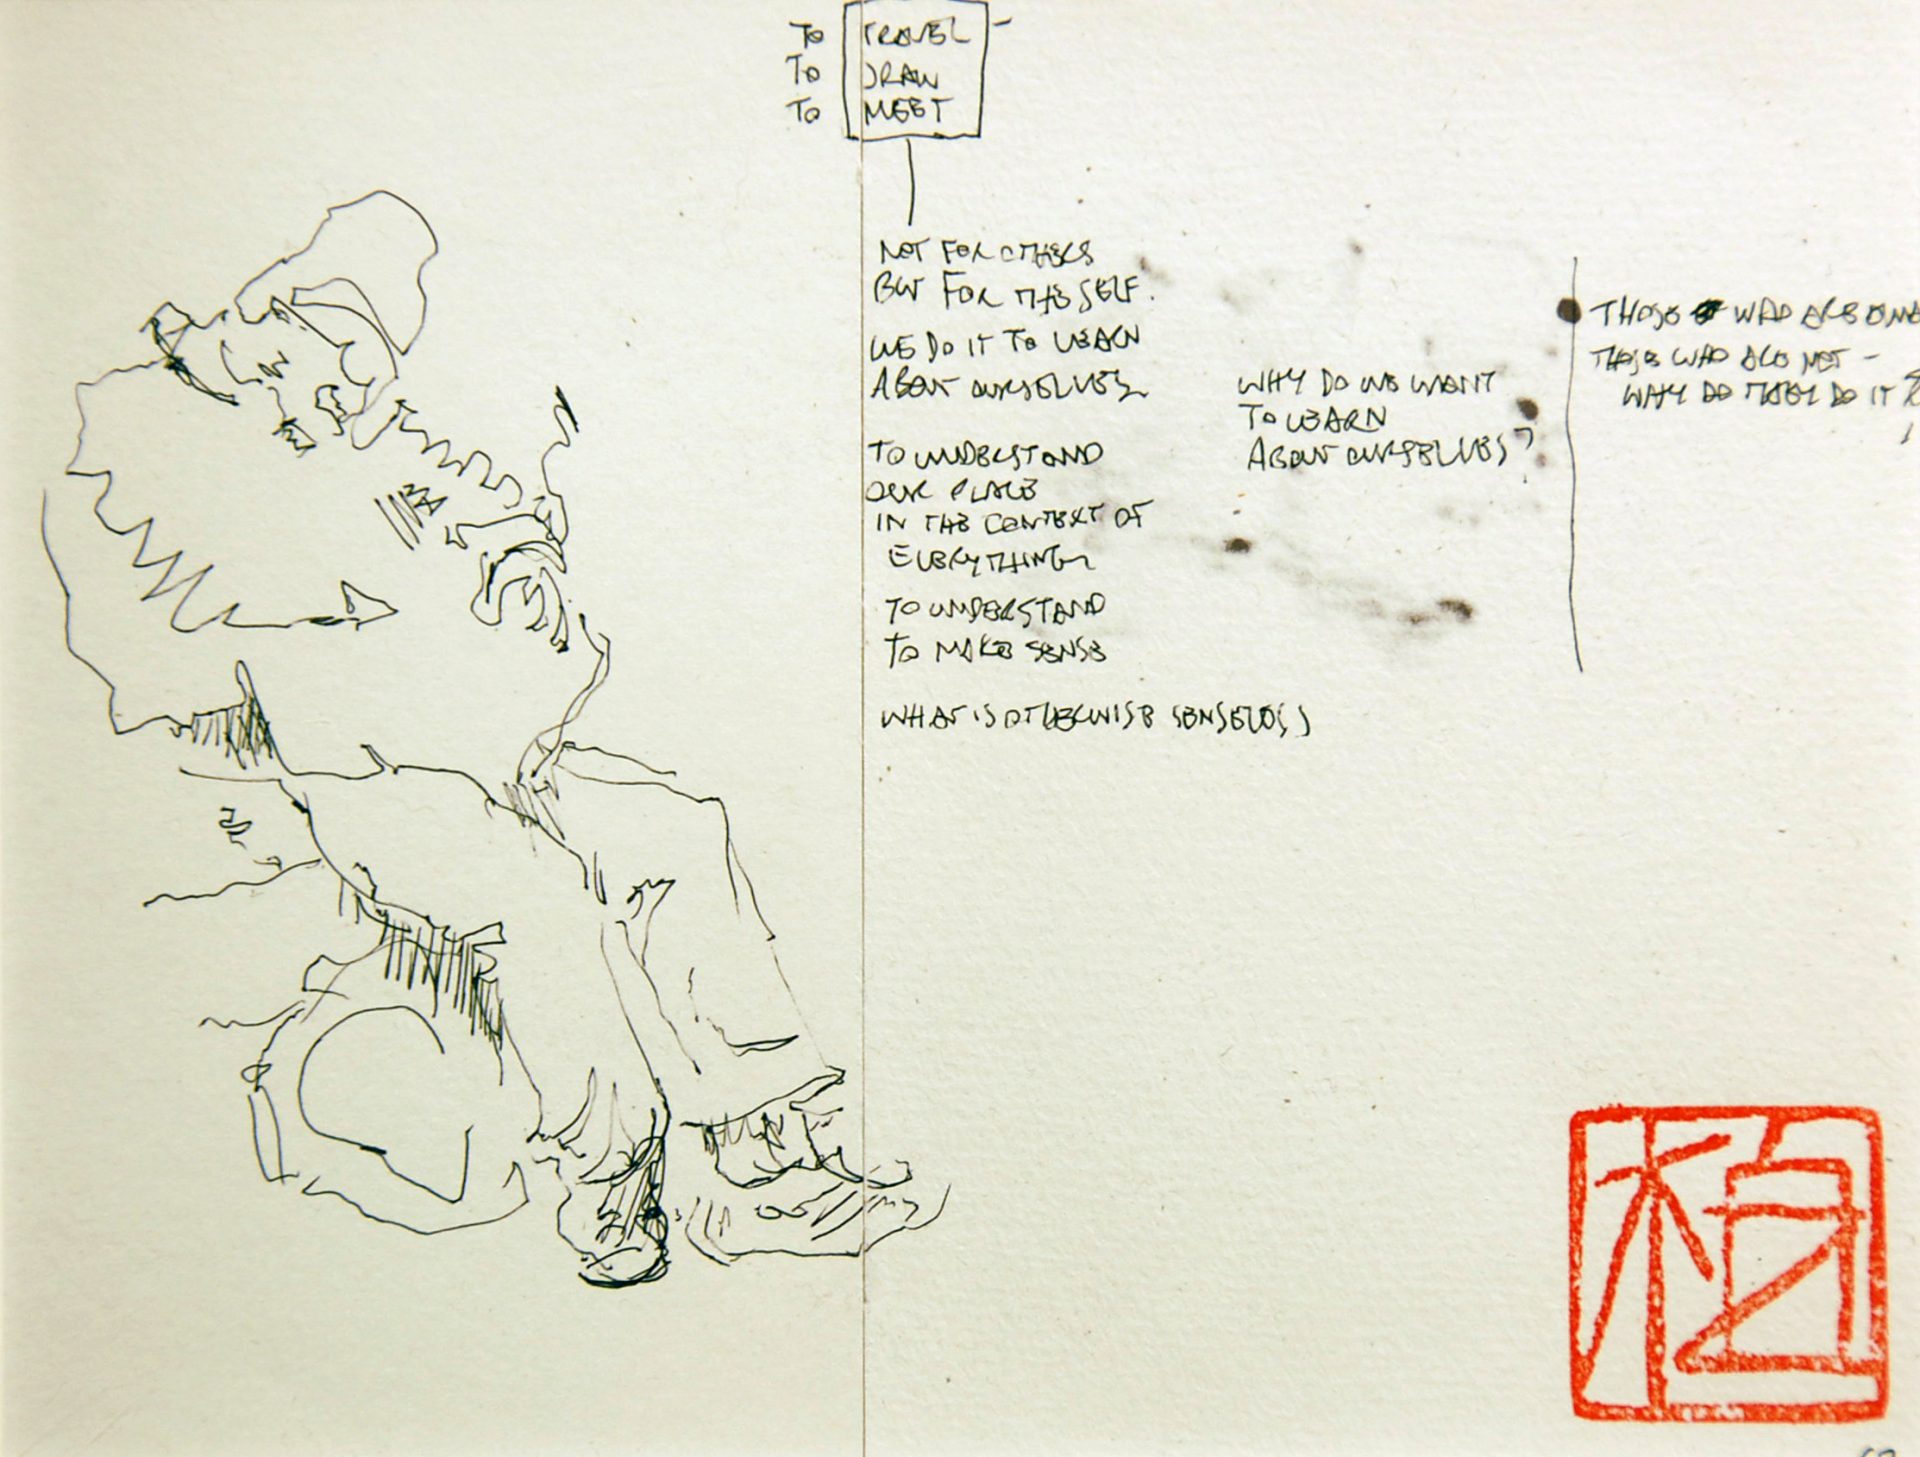 TO TRAVEL -
TO DRAW
TO MEET
NOT FOR OTHERS
BUT FOR THE SELF.
WE DO IT TO LEARN
ABOUT OURSELVES
TO UNDERSTAND
OUR PLACE
IN THE CONTEXT OF
EVERYTHING
TO UNDERSTAND
TO MAKE SENSE
WHAT IS OTHERWISE SENSELESS
WHY DO WE WANT
TO LEARN
ABOUT OURSELVES?
THOSE WHO ARE
THOSE WHO ARE NOT -
WHY DO THEY DO IT